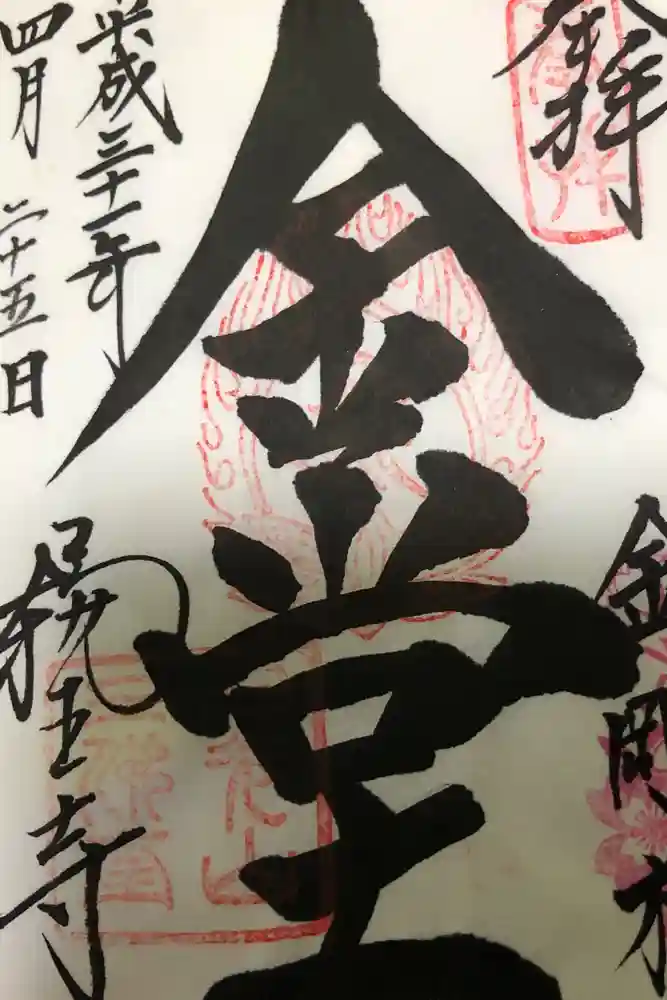 奉拝
金剛桜
金堂
平成三十一年
四月二十五日
輪王寺